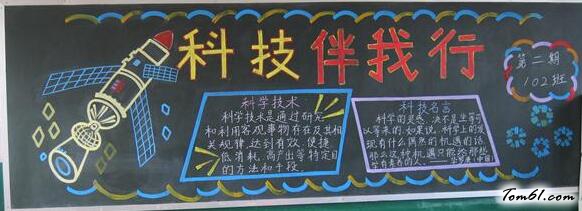 科技伴我行
第二期
102班
科学技术
科学技术是通过研究
和利用客观事物存在及其相
关规律,达到有效、便捷
低消耗、高产出等特定目
的方法和手段。
科技名言
科学的灵感,决不是坐等可
以等来的.如果说,科学上的发
现有什么偶然的机遇的话,
那么这种机遇只能给那些
学有素养的人
Tom61.com